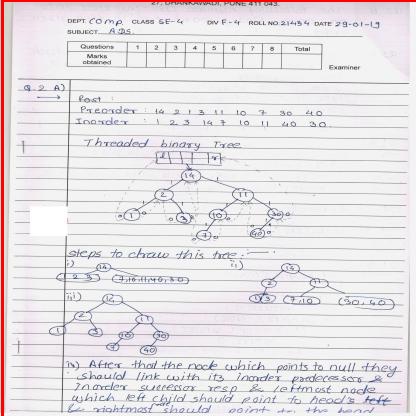 27, DHANKAWADI, PUNE 411 043.
DEPT. COMP. CLASS SE-4 DIV F-4 ROLL NO. 21434 DATE 29-01-19
SUBJECT ADS.
Questions 1 2 3 4 5 6 7 8 Total
Marks obtained
Examiner
Q.2 A)
Post :
Preorder : 14 2 1 3 11 10 7 30 40
Inorder : 1 2 3 14 7 10 11 40 30
Threaded binary Tree
l r
14
2 11
1 3 10 30
7 40
steps to draw this tree:-
i) ii)
14 14
1 2 3 7,10,11,40,30 2 11
1 3 7,10 30,40
iii) 14
2 11
1 3 10 30
7 40
iv) After that the node which points to null they
should link with its inorder predecessor &
Inorder successor resp & leftmost node
which left child should point to head's left
& rightmost should point to the head